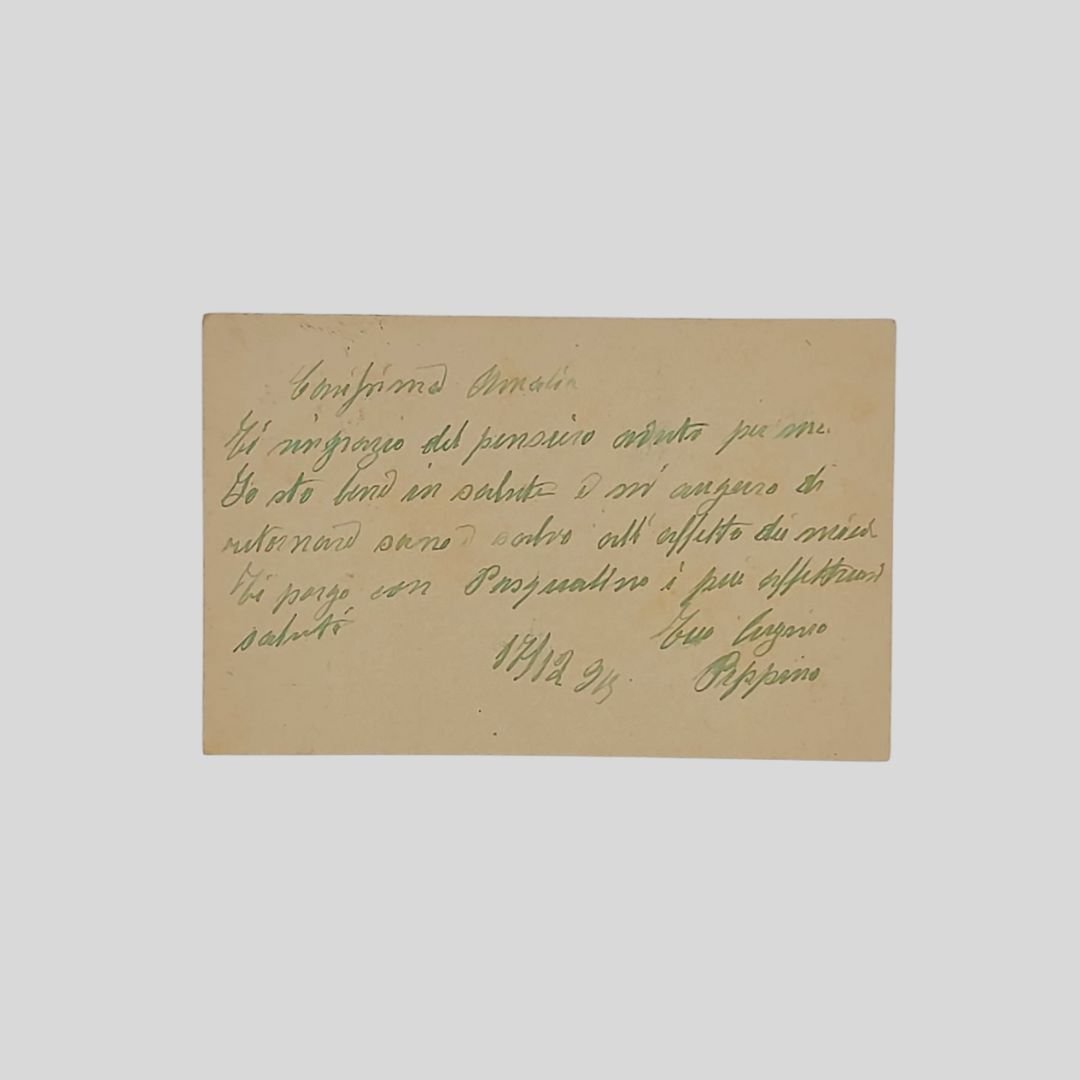 Carissima Amalia
Ti ringrazio del pensiero avuto per me.
Io sto bene in salute e mi auguro di
ritornare sano e salvo all'affetto dei miei
Ti porgo con Pasqualino i più affettuosi
saluti
Tuo Cugino
17/12 Peppino